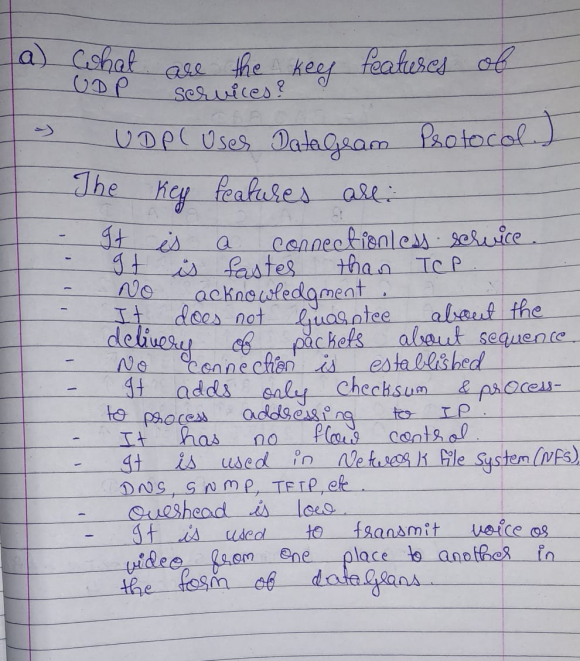 a) What are the key features of
UDP services?
=> UDP( User Datagram Protocol.)
The key features are:
- It is a connectionless service.
- It is faster than TCP
- No acknowledgment.
- It does not guarntee about the
delivery of packets about sequence.
- No connection is established
- It adds only checksum & process-
to process addressing to IP.
- It has no flow control.
- It is used in Network File System (NFS)
DNS, SNMP, TFTP, etc.
- Overhead is low.
- It is used to transmit voice or
video from one place to another in
the form of datagrans.